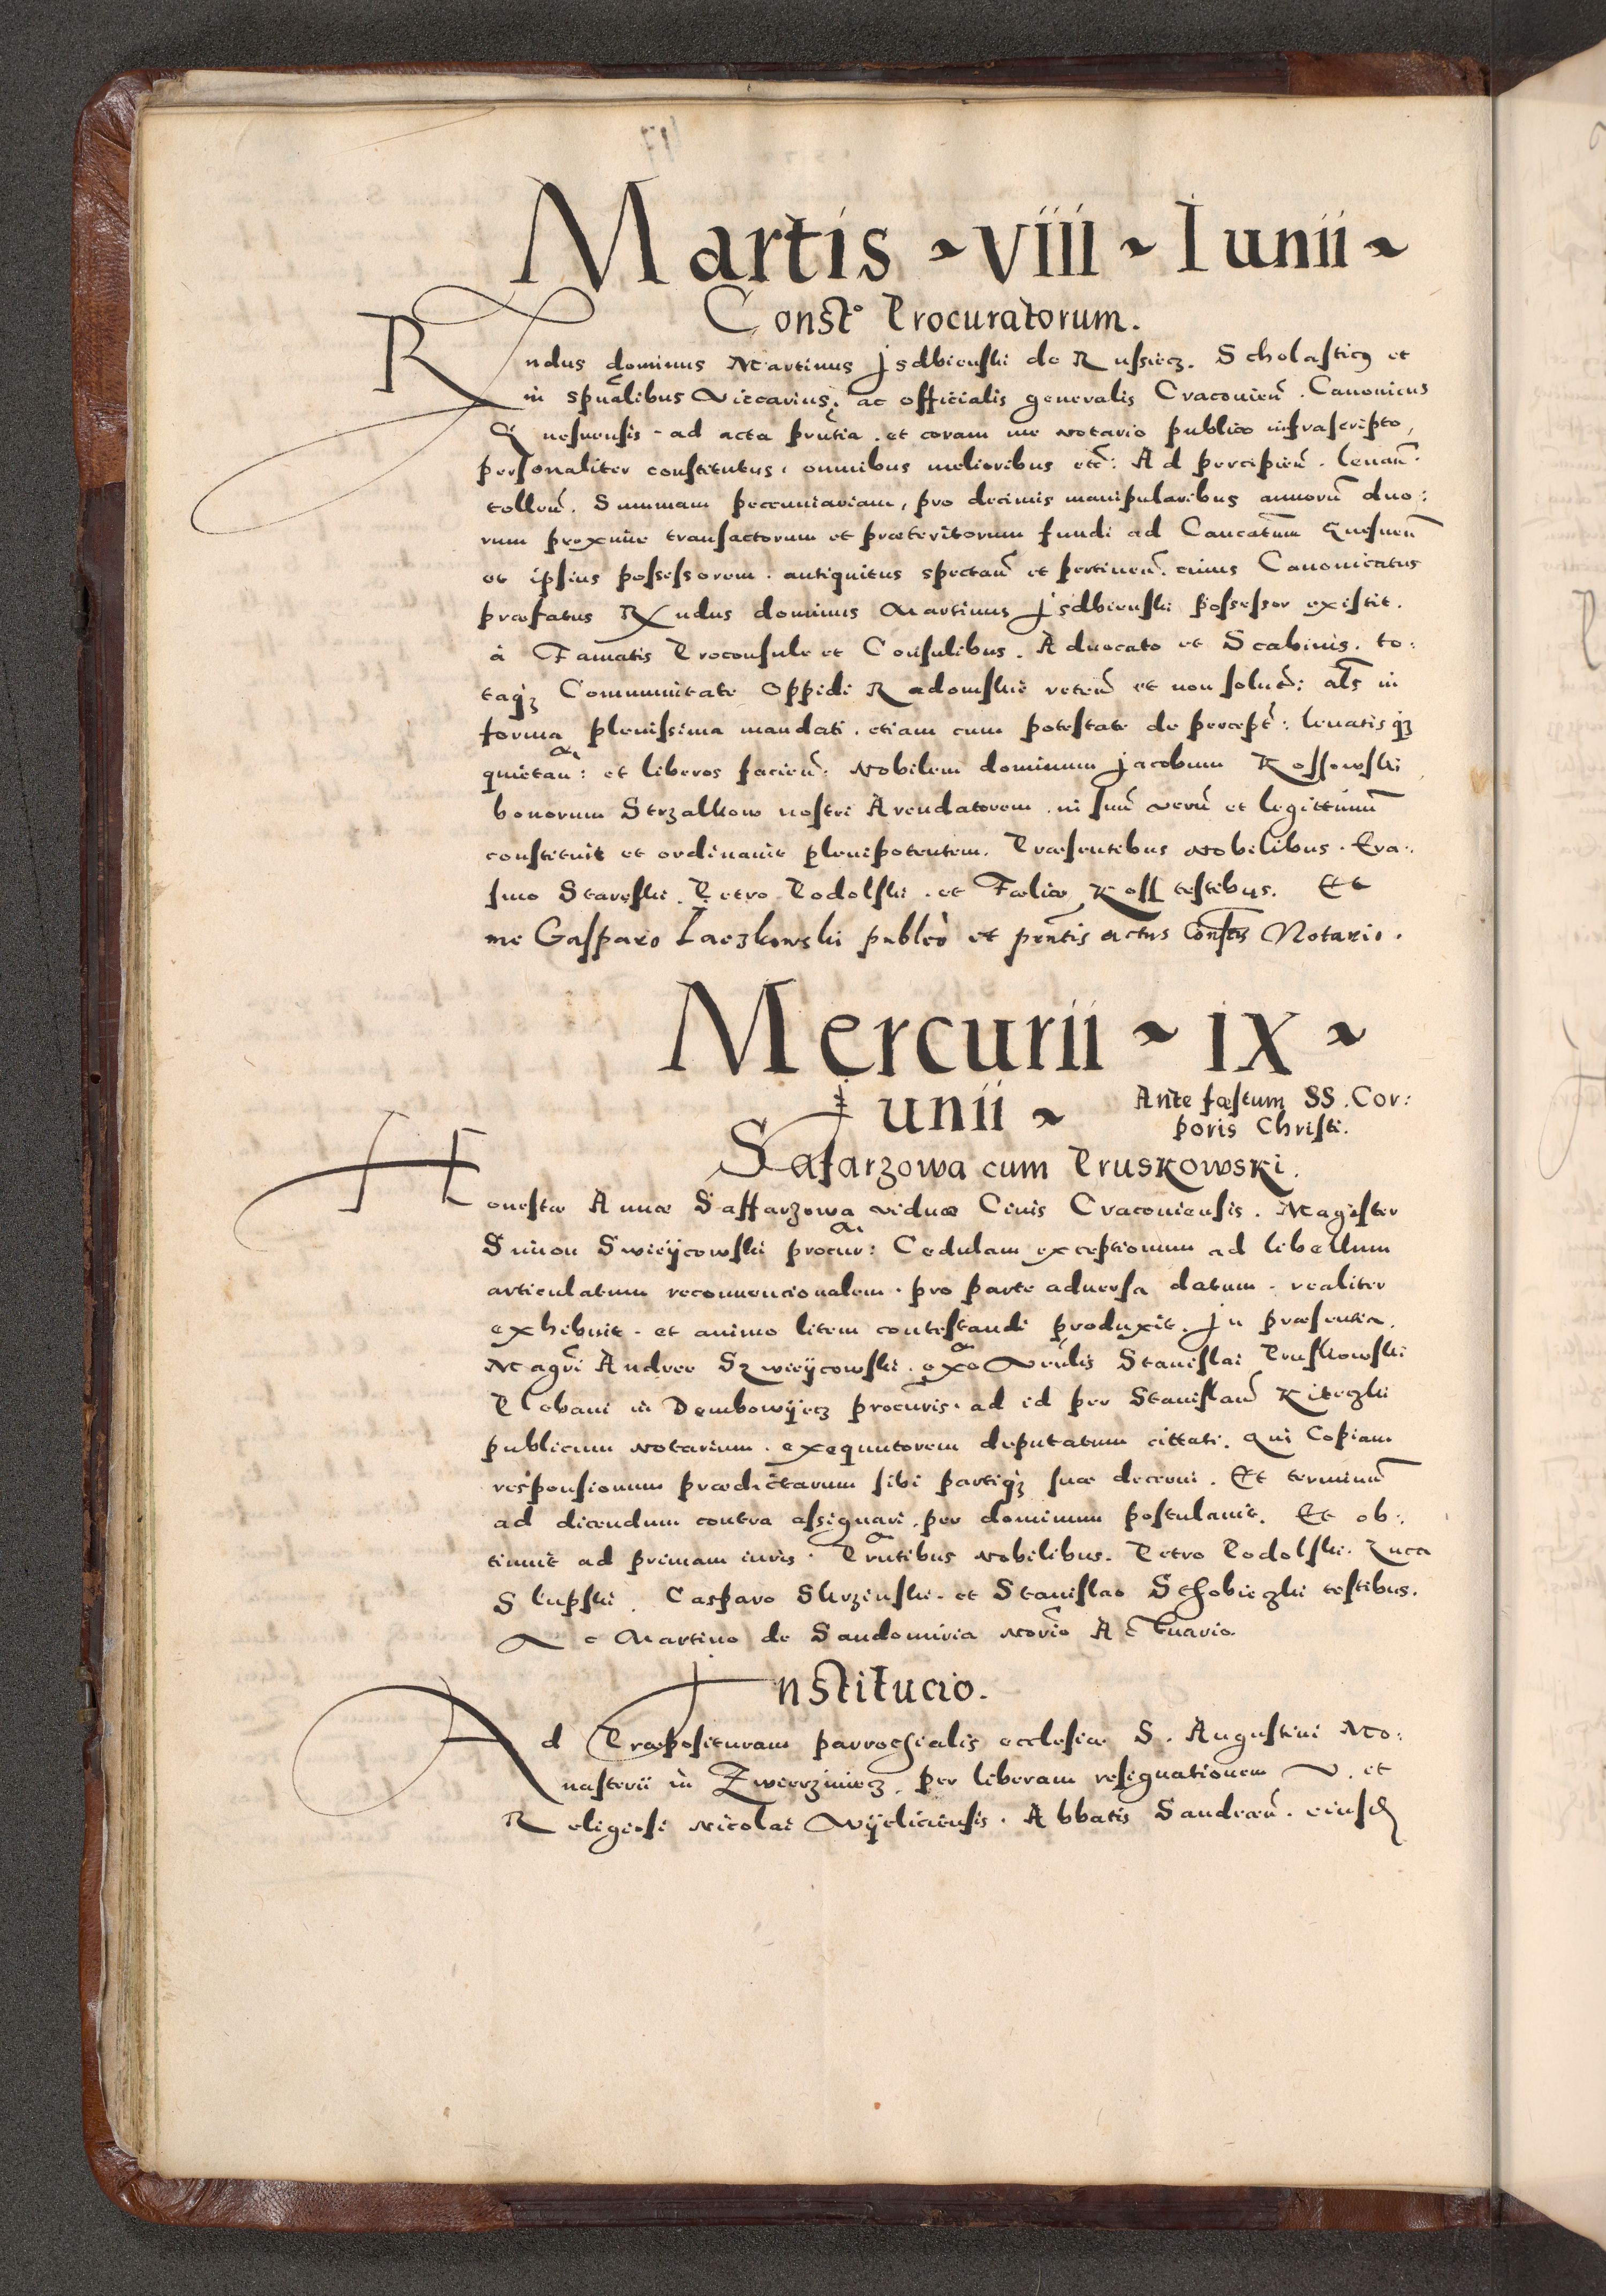 Martis ~ viii ~ Iunii ~
Const° Procuratorum.
Rndus dominus Martinus Jsdbienski de Russiecz. Scholasticꝰ et
in spũalibus Viccarius, ac officialis generalis Cracovieñ. Canonicus
Gnesnensis. ad acta pñtia. et coram me Notario publico infrascripto,
personaliter constitutus, omnibus melioribus etc̃: Ad percipieñ. levañ.
tolleñ. Summam peccuniariam, pro decimis manipularibus annorũ duo:
rum proxime transactorum et præteritorum fundi ad Canĉatum Gnesneñ
et ipsius possessorem. antiquitus spectañ et pertineñ. cuius Canonicatus
præfatus Rndus dominus Martinus Jsdbienski possessor existit.
à Famatis Proconsule et Consulibus. Advocato et Scabinis. to:
taqꝫ Communitate Oppidi Radomskie reteñ et non solut̃: als̃ in
forma plenissima mandati. etiam cum potestate de percept̃: levatisqꝫ
quietañ: et liberos facieñ. Nobilem dominum Jacobum Kossowski
bonorum Strzalkow nostri Arendatorem. in suũ verũ et legittimũ
constituit et ordinavit plenipotentem. Præsentibus Nobilibus. Era:
smo Stareski. Petro Podolski. et Fœlice Koss testibus. Et
me Gasparo Laczkowski publcõ et pñtis actus Constris Notario.
Mercurii ~ ix ~
Iunii ~
Ante fæstum SS. Cor:
poris Christi.
Safarzowa cum Pruskowski.
Honestæ Annæ Saffarzowa viduæ Civis Cracoviensis. Magister
Simon Swieÿcowski procur: Cedulam exceptionum ad libellum
articulatum reconvencionalem. pro parte adversa datum. realiter
exhibuit. et animo litem contestandi produxit. Jn præsentia.
Magr̃i Andree Szwieÿcowski. exo Veñlis Stanislai Pruskowski
Plebani in Dembowÿecz procuris. ad id per Stanislaũ Kiteczki
publicum Notarium. exequutorem deputatum cittati. Qui Copiam
responsionum prædictarum sibi partiqꝫ suæ decerni. Et terminũ
ad dicendum contra assignari. per dominum postulavit. Et ob:
tinuit ad primam iuris. Pñtibus Nobilibus. Petro Podolski. Luca
Slupski. Casparo Skrzinski. et Stanislao Schobieczki testibus.
Ac Martino de Sandomiria Noriõ Actuario.
Institucio.
Ad Præposituram parrochialis ecclesiæ S. Augustini Mo:
nasterii in Zwierziniecz. per liberam resignationem V. et
Religiosi Nicolai Wÿeliciensis. Abbatis Sandeceñ. eiusd